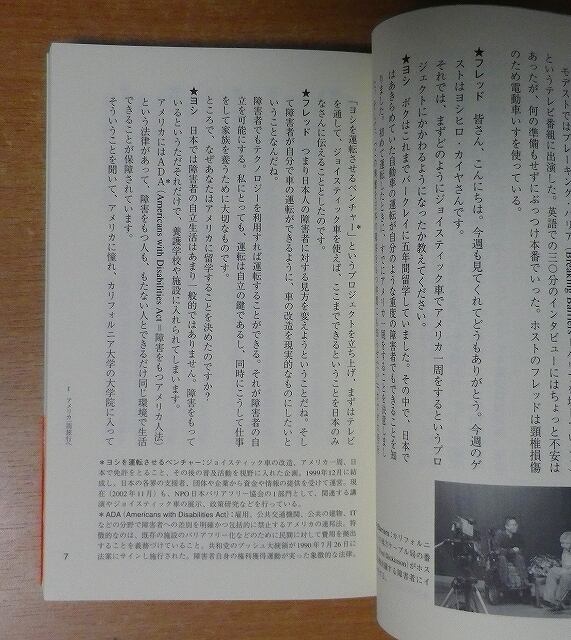 モデストではブレーキング・バリア (Breaking Barriers
というテレビ番組に出演した。英語での三〇分のインタビューにはちょっと不安は
あったが、何の準備もせずにぶっつけ本番でいった。ホストのフレッドは頸椎損傷
のため電動車いすを使っている。
★フレッド 皆さん、こんにちは。今週も見てくれてどうもありがとう。今週のゲ
ストはヨシヒロ・カイヤさんです。
それでは、まずどのようにジョイスティック車でアメリカ一周をするというプロ
ジェクトにかかわるようになったか教えてください。
★ヨシ ボクはこれまでバークレイに五年間留学していました。その中で、日本で
はあきらめていた自動車の運転が自分のような重度の障害者でもできることを知
りました。
「ヨシを運転させるベンチャー*」というプロジェクトを立ち上げ、まずはテレビ
を通して、ジョイスティック車を使えば、ここまでできるということを日本のみ
なさんに伝えることとしたのです。
★フレッド つまり日本人の障害者に対する見方を変えようということだね。そし
て障害者が自分で車の運転ができるように、車の改造を現実的なものにしたいと
いうことなんだね。
障害者でもテクノロジーを利用すれば運転することができる。それが障害者の自
立を可能にする。私にとっても、運転は自立の鍵であるし、同時にこうして仕事
をして家族を養うために大切なものです。
ところで、なぜあなたはアメリカに留学することを決めたのですか?
★ヨシ 日本では障害者の自立生活はあまり一般的ではありません。障害をもって
いるというただそれだけで、養護学校や施設に入れられてしまいます。
アメリカにはADA*(Americans with Disabilities Act=障害をもつアメリカ人法)
という法律があって、障害をもつ人も、もたない人とできるだけ同じ環境で生活
できることが保障されています。
そういうことを聞いて、アメリカに憧れ、カリフォルニア大学の大学院に入って
*ヨシを運転させるベンチャー:ジョイスティック車の改造、アメリカ一周、日
本で免許をとること、その後の普及活動を視野に入れた企画。1999年12月に結
成し、日本の各界の支援者、団体や企業から資金や情報の提供を受けて運営。現
在(2002年11月)も、NPO日本バリアフリー協会の1部門として、関連する講
演やジョイスティック車の展示、政策研究などを行っている。
*ADA (Americans with Disabilities Act):雇用、公共交通機関、公共の建物、IT
などの分野で障害者への差別を明確かつ包括的に禁止するアメリカの連邦法。特
徴的なのは、既存の施設のバリアフリー化などのために民間に対して費用を拠出
することを義務づけていること。共和党のブッシュ大統領が1990年7月26日に
法案にサインし施行された。障害者自身の権利獲得運動が実った象徴的な法律。
7